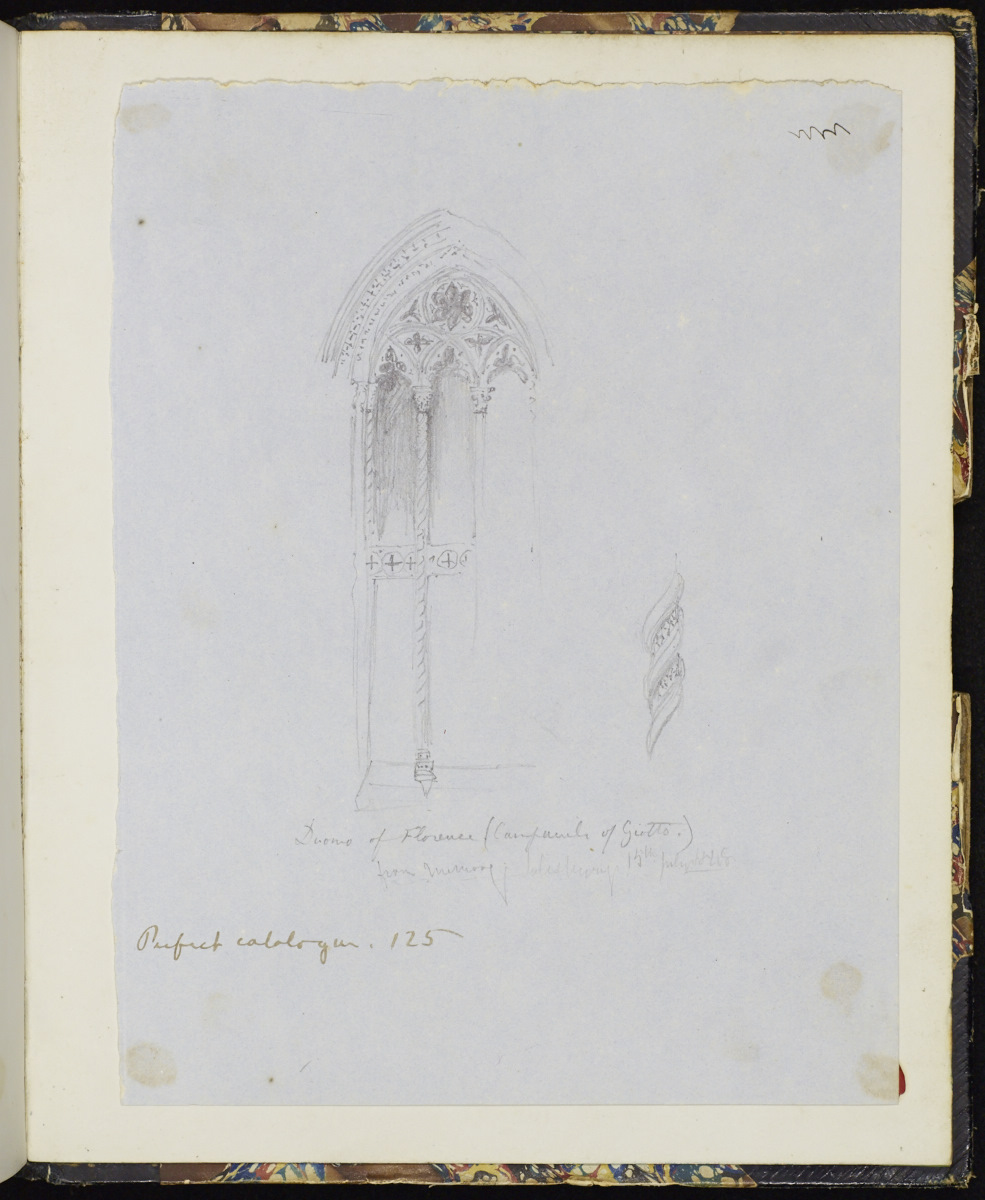 Duomo of Florence (Campanile of Giotto.)
from memory; 15th July
Perfect catalogue. 125